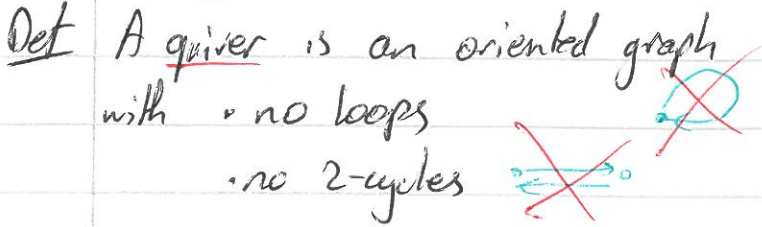 Def A quiver is an oriented graph
with • no loops
• no 2-cycles